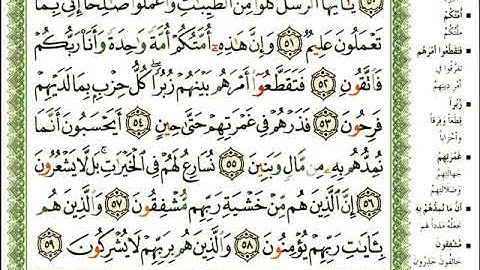 ٥٠ يَٰٓأَيُّهَا ٱلرُّسُلُ كُلُوا۟ مِنَ ٱلطَّيِّبَٰتِ وَٱعْمَلُوا۟ صَٰلِحًا إِنِّى بِمَا
تَعْمَلُونَ عَلِيمٌ ٥١ وَإِنَّ هَٰذِهِۦٓ أُمَّتُكُمْ أُمَّةً وَٰحِدَةً وَأَنَا۠ رَبُّكُمْ
فَٱتَّقُونِ ٥٢ فَتَقَطَّعُوٓا۟ أَمْرَهُم بَيْنَهُمْ زُبُرًا كُلُّ حِزْبٍۭ بِمَا لَدَيْهِمْ
فَرِحُونَ ٥٣ فَذَرْهُمْ فِى غَمْرَتِهِمْ حَتَّىٰ حِينٍ ٥٤ أَيَحْسَبُونَ أَنَّمَا
نُمِدُّهُم بِهِۦ مِن مَّالٍ وَبَنِينَ ٥٥ نُسَارِعُ لَهُمْ فِى ٱلْخَيْرَٰتِ بَل لَّا يَشْعُرُونَ
٥٦ إِنَّ ٱلَّذِينَ هُم مِّنْ خَشْيَةِ رَبِّهِم مُّشْفِقُونَ ٥٧ وَٱلَّذِينَ هُم
بِـَٔايَٰتِ رَبِّهِمْ يُؤْمِنُونَ ٥٨ وَٱلَّذِينَ هُم بِرَبِّهِمْ لَا يُشْرِكُونَ ٥٩
أُمَّتُكُمْ
مِلَّتُكُمْ
فَتَقَطَّعُوا أَمْرَهُم
تَفَرَّقُوا فِي
أَمْرِ دِينِهِمْ
زُبُرًا
قِطَعًا وَفِرَقًا
وَأَحْزَابًا
غَمْرَتِهِمْ
جَهَالَتِهِمْ
وَضَلَالَتِهِمْ
أَنَّ مَا نُمِدُّهُم بِهِ
نَجْعَلُهُ مَدَدًا لَهُمْ
مُشْفِقُونَ
خَائِفُونَ حَذِرُونَ